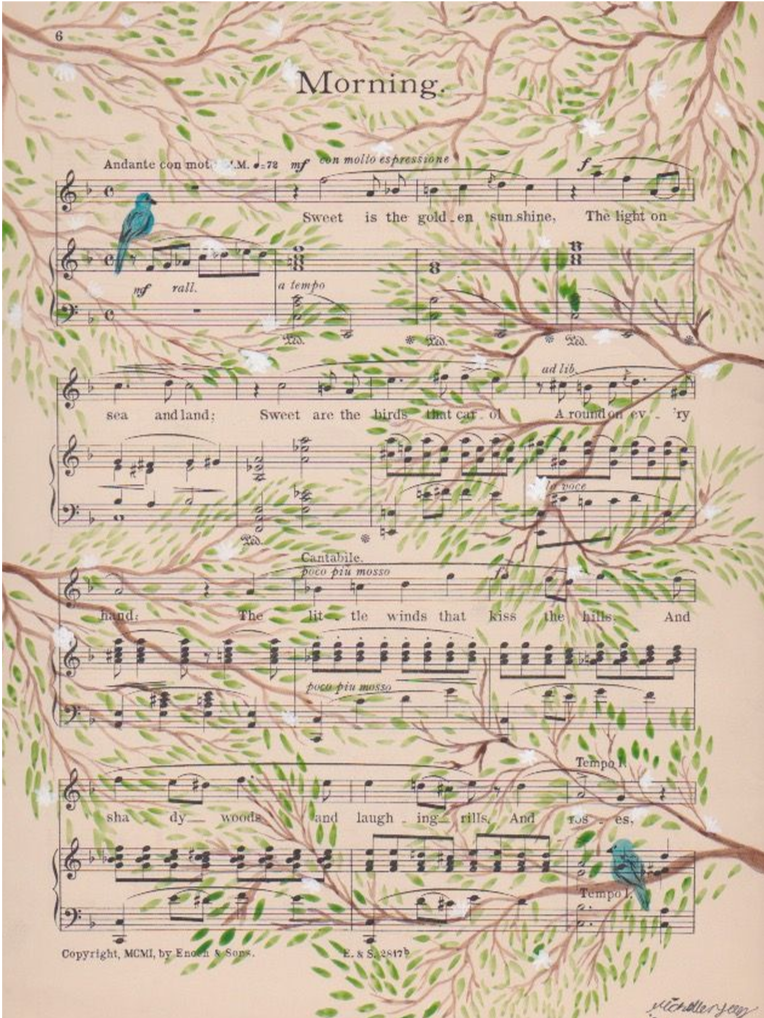 6
Morning.
Andante con mot M.M. ♩=72 mf con molto espressione f
Sweet is the gold_en sun_shine, The light on
mf rall. a tempo
Ped. * Ped. * Ped. *
ad lib.
sea and land; Sweet are the birds that car_ol A round on ev_'ry
la voce
Ped. *
Cantabile.
poco più mosso
hand: The lit_tle winds that kiss the hills, And
poco piu mosso
Tempo I.
sha_dy_ woods and laugh_ing_ rills, And ros_es,
Tempo I.
Copyright, MCMI, by Enoch & Sons. E. & S. 2817b